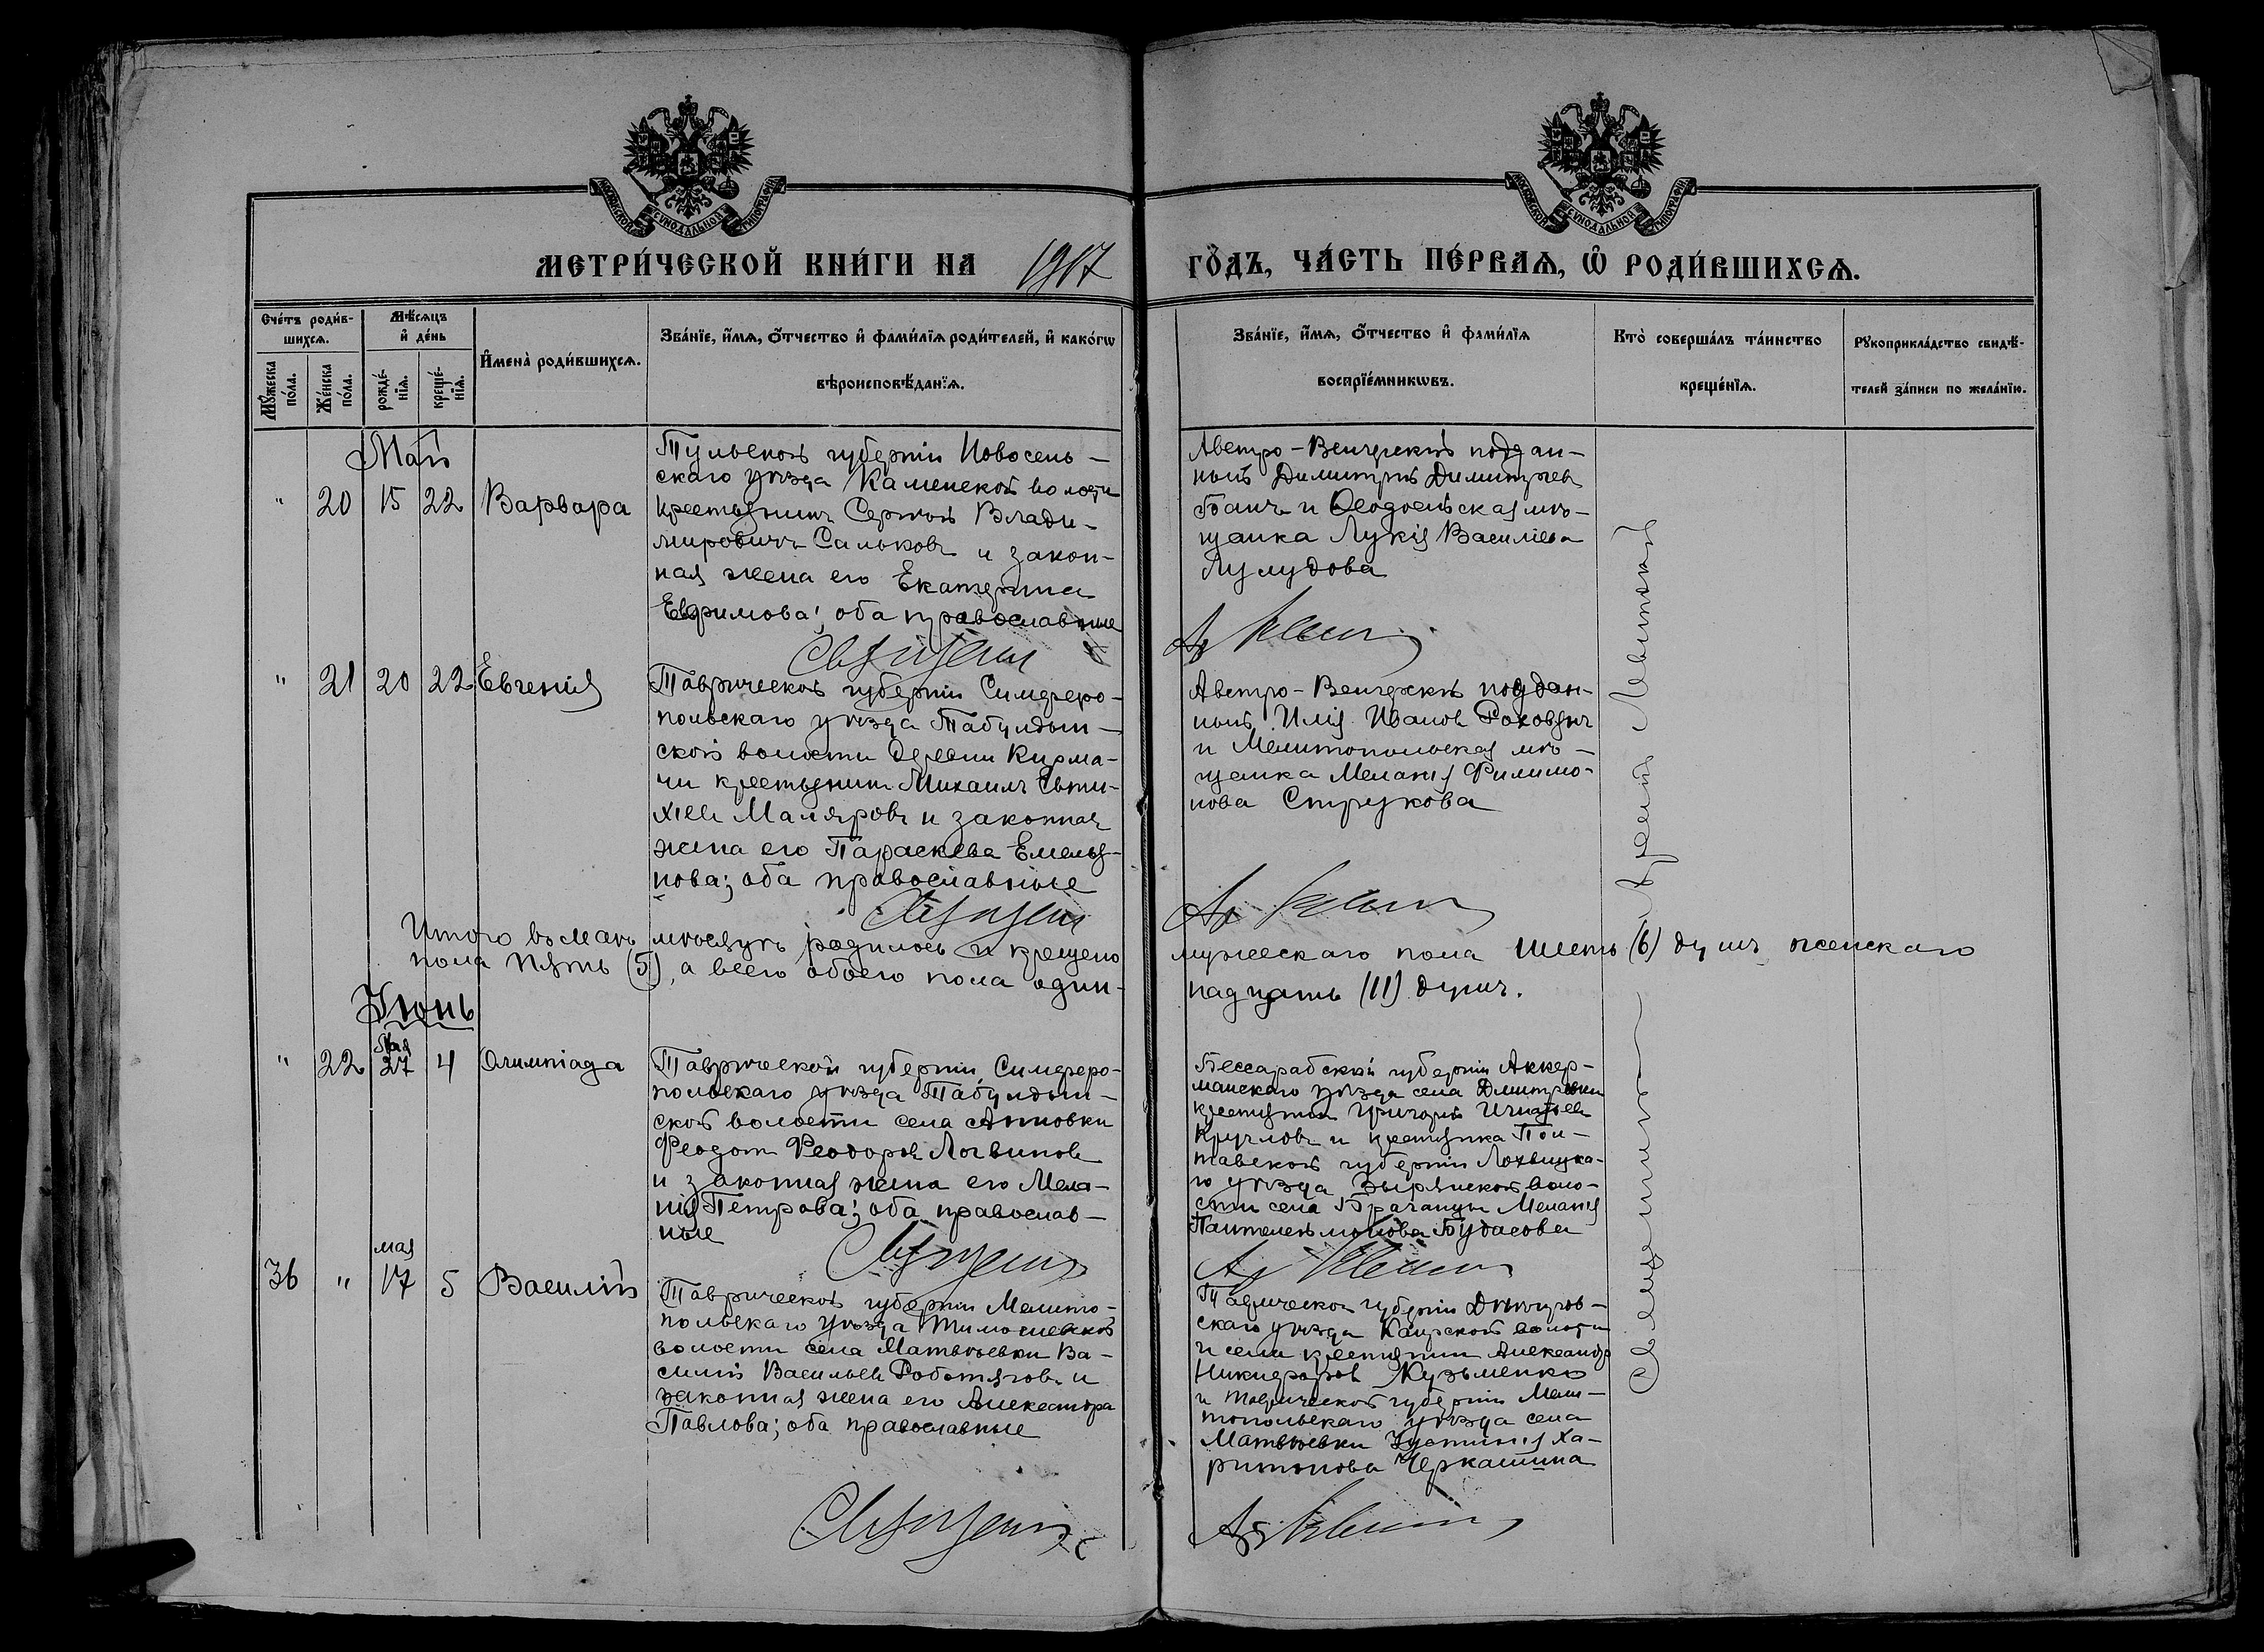 МЕТРИ́ЧЕСКОЙ КНИ́ГИ НА 1917 ГО́ДЪ, ЧА́СТЬ ПЕ́РВАѦ, Ѡ҆ РОДИ́ВШИХСѦ.
Сче́тъ роди́в-
шихсѧ.
Мꙋ́жеска
по́ла.
Же́нска
по́ла.
Мѣ́сѧцъ
и҆ де́нь
рожде́-
нїѧ.
креще́-
нїѧ.
И҆мена̀ роди́вшихсѧ.
Зва́нїе, и҆́мѧ, ѻ҆́тчество и҆ фами́лїѧ роди́телей, и҆ како́гѡ
вѣроисповѣ́данїѧ.
Зва́нїе, и҆́мѧ, ѻ҆́тчество и҆ фами́лїѧ
воспрїе́мникѡвъ.
Кто̀ соверша́лъ та́инство
креще́нїѧ.
Рꙋкоприкла́дство свидѣ́-
телей за́писи по жела́нїю.
Май
" 20 15 22 Варвара
Тульской губернiи Новосень-
скаго уѣзда Каменской волости
крестьянинъ Сергѣй Влади-
мировичъ Сальковъ и закон-
ная жена его Екатерина
Евфимова; оба православные
Австро-Венгерскiй поддан-
ный Димитрiй Димитрiевъ
Банъ и Ѳеодосiйская мѣ-
щанка Лукiя Василiева
Лулудова
" 21 20 22 Евгенiя
Таврической губернiи Симферо-
польскаго уѣзда Табулдын-
ской волости деревни Кирма-
чи крестьянинъ Михаилъ Евти-
хiевъ Маляровъ и законная
жена его Параскева Емелья-
нова; оба православные
Австро-Венгерскiй поддан-
ный Илiя Ивановъ Раковянъ
и Мелитопольская мѣ-
щанка Меланiя Филимо-
нова Струкова
Итого въ маѣ мѣсяцѣ родилось и крещено мужескаго пола шесть (6) душъ женскаго
пола пять (5), а всего обоего пола один-надцать (11) душъ.
Iюнь
" 22 мая 27 4 Олимпiада
Таврической губернiи, Симферо-
польскаго уѣзда Табулдын-
ской волости села Анновки
Феодотъ Феодоровъ Логвиновъ
и законная жена его Мела-
нiя Петрова; оба православ-
ные
Бессарабской губернiи Аккер-
манскаго уѣзда села Дмитровки
крестьянинъ Григорiй Игнатьевъ
Кругловъ и крестьянка Пол-
тавской губернiи Лохвицка-
го уѣзда воло-
сти села Меланiя
Пантелеимонова Будасова
36 " мая 17 5 Василiй
Таврической губернiи Мелито-
польскаго уѣзда Тимошевской
волости села Матвѣевки Ва-
силiй Васильевъ Работяговъ и
законная жена его Александра
Павлова; оба православные
Таврической губернiи Днѣпров-
скаго уѣзда Каирской волости
и села крестьянинъ Александръ
Никифоровъ Кузьменко
и Таврической губернiи Мели-
топольскаго уѣзда села
Матвѣевки Iустинiя Ха-
ритонова Черкашина
Священникъ Левитскiй